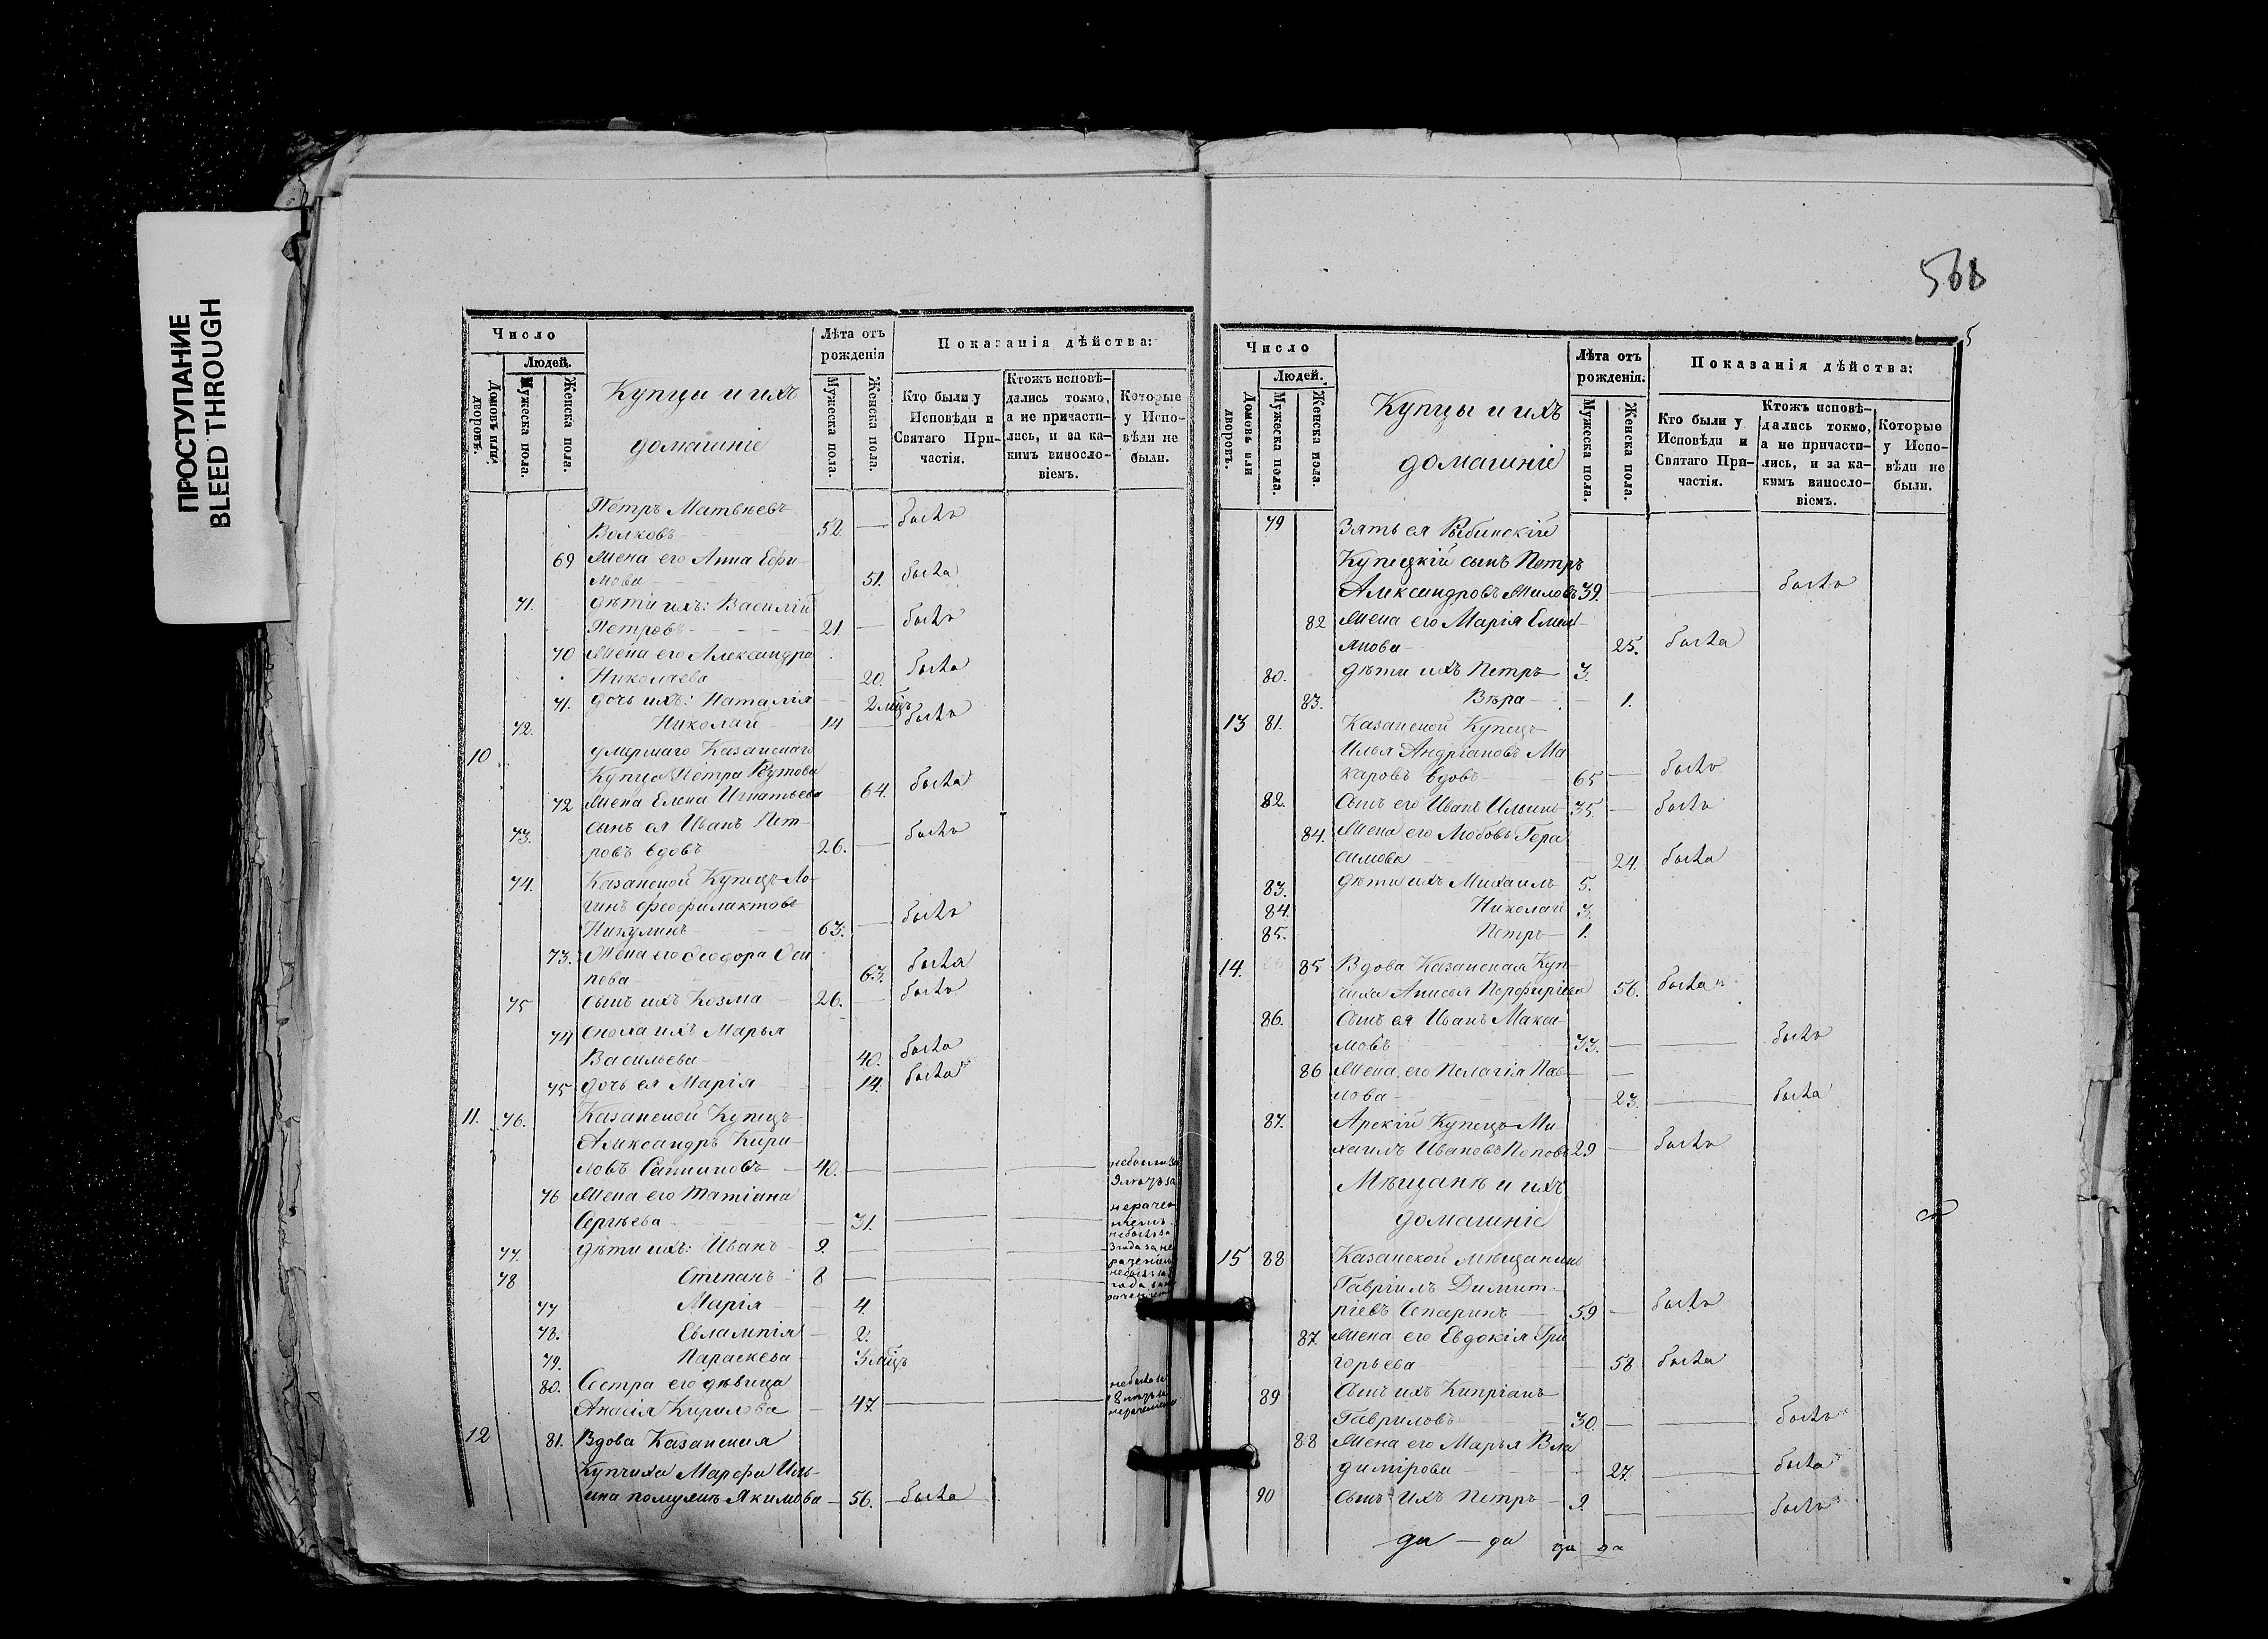 ПРОСТУПАНИЕ
BLEED THROUGH
Число
Людей.
Домовъ или дворовъ.
Мужеска пола.
Женска пола.
Купцы и ихъ
домашніе
Лѣта отъ
рожденія
Мужеска пола.
Женска пола.
Показанія дѣйства:
Кто были у
Исповѣди и
Святаго При-
частія.
Ктожъ исповѣ-
дались токмо,
а не причасти-
лись, и за ка-
кимъ винosло-
віемъ.
Которые
у Испо-
вѣди не
были.
Петръ Матвѣевъ
Волковъ 52. — былъ
69 Жена его Анна Ефи-
мова 51. была
71. дѣти ихъ: Василій
Петровъ 21. — былъ
70 Жена его Александра
Николаева 20. была
71. дочь ихъ: Наталія 2 мцъ
72. Николай 14 — былъ
10 умершаго Казанскаго
Купца Петра
72 Жена Елена Игнатьева 64. была
73. сынъ ея Иванъ Пет-
ровъ вдовъ 26. — былъ
74. Казанской Купецъ Ло-
гинъ Феофилактовъ
Никулинъ 63. — былъ
73. Жена его Феодора Оси
пова 63. была
75 Сынъ ихъ Козма 26. — былъ
74 Сноха ихъ Марья
Васильева 40. была
75 дочь ея Марія 14. была
11. 76. Казанской Купецъ
Александръ Кири-
ловъ 40. —
76 Жена его Татіана
Сергѣева 31. —
77. дѣти ихъ: Иванъ 9. —
78 Степанъ 8 —
77 Марія 4.
78. Евлампія 2.
79. Параскева 3 мцъ
80. Сестра его дѣвица
Кирилова 47. —
12 81. Вдова Казанская
Купчиха Марфа Иль-
ина помужѣ Якимова — 56. была
5
Число
Людей.
Домовъ или дворовъ.
Мужеска пола.
Женска пола.
Купцы и ихъ
домашніе
Лѣта отъ
рожденія.
Мужеска пола.
Женска пола.
Показанія дѣйства:
Кто были у
Исповѣди и
Святаго При-
частія.
Ктожъ исповѣ-
дались токмо,
а не причасти-
лись, и за ка-
кимъ винosло-
віемъ.
Которые
у Испо-
вѣди не
были.
79 Зять ея Рыбинскій
Купецкій сынъ Петръ
Александровъ Миловъ 39. — былъ
82 Жена его Марія Емел-
янова 25. была
80. дѣти ихъ Петръ 3.
83. Вѣра 1.
13 81. Казанской Купецъ
Илья Андріановъ Ма
каровъ вдовъ 65 — былъ
82. Сынъ его Иванъ Ильинъ 35. — былъ
84. Жена его Любовь Гера
симова 24. была
83. дѣти ихъ Михаилъ 5.
84. Николай 3.
85. Петръ 1.
14. 85 Вдова Казанская Куп-
чиха Анисья Порфиріева 56. была
86. Сынъ ея Иванъ Макси
мовъ 33. — былъ
86 Жена его Пелагія Пав-
лова 23. — была
87. Арскій Купецъ Ми-
хаилъ Ивановъ Поповъ 29 — былъ
Мѣщанѣ и ихъ
домашніе
15 88 Казанской мѣщанинъ
Гавріилъ Димит-
ріевъ 59 — былъ
87. Жена его Евдокія Гри
горьева 58 была
89 Сынъ ихъ Кипріанъ
Гавриловъ 30. — былъ
88 Жена его Марья Вла
димірова 27. — была
90 Сынъ ихъ Петръ 9. — былъ